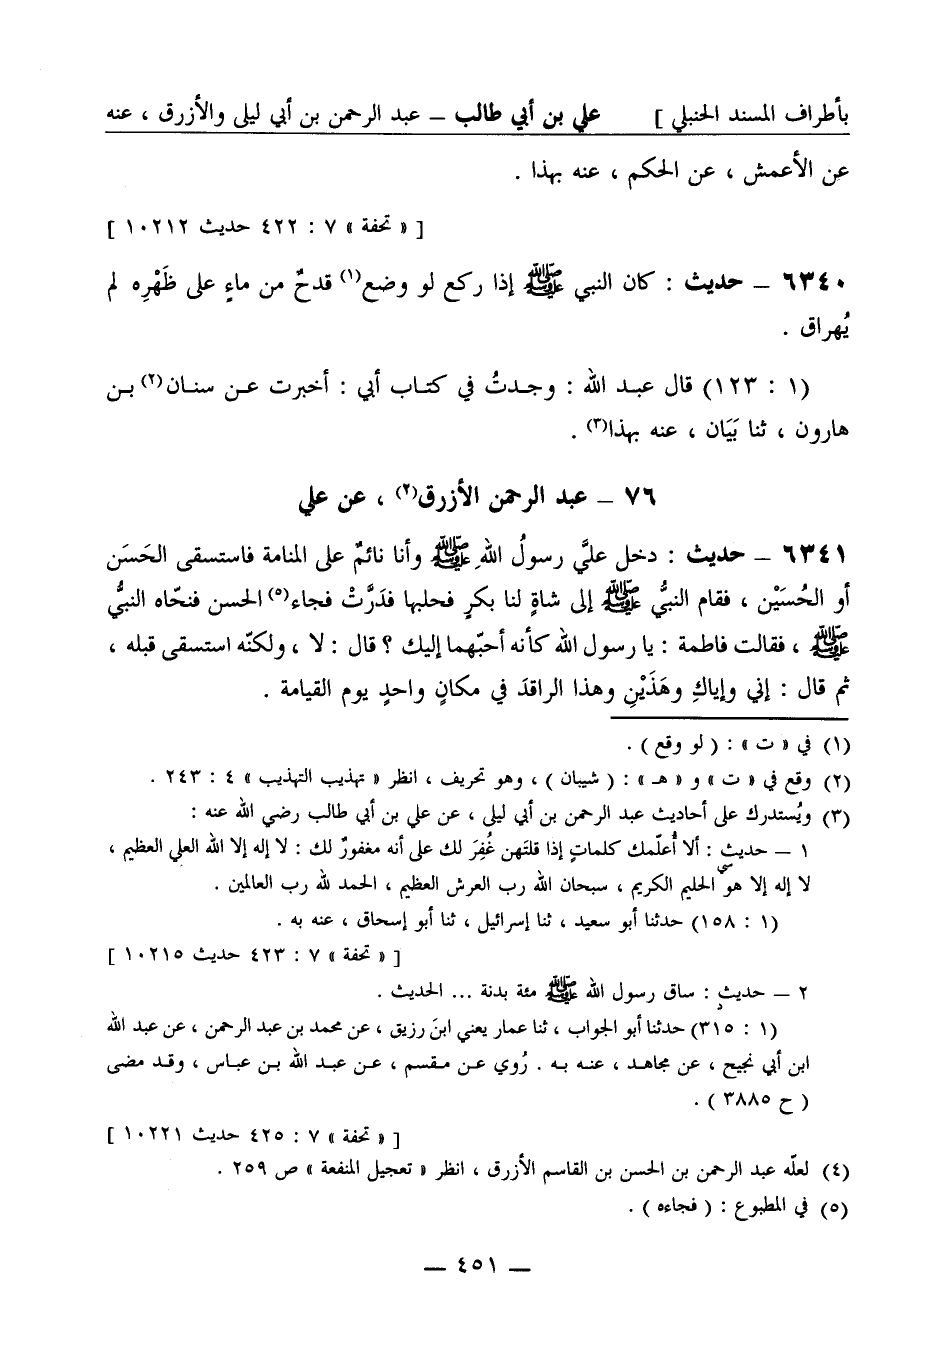 بأطراف المسند الحنبلي ] علي بن أبي طالب – عبد الرحمن بن أبي ليلى والأزرق ، عنه
عن الأعمش ، عن الحكم ، عنه بهذا .
[ « تحفة » ٧ : ٤٢٢ حديث ١٠٢١٢ ]
٦٣٤٠ – حديث : كان النبي ﷺ إذا ركع لو وضع(١) قدحٌ من ماءٍ على ظَهْرِه لم
يُهراق .
(١ : ١٢٣) قال عبد الله : وجدتُ في كتاب أبي : أخبرت عن سنان(٢) بن
هارون ، ثنا بَيَان ، عنه بهذا(٣) .
٧٦ – عبد الرحمن الأزرق(٢) ، عن علي
٦٣٤١ – حديث : دخل عليَّ رسولُ اللهِ ﷺ وأنا نائمٌ على المنامة فاستسقى الحَسَن
أو الحُسَيْن ، فقام النبيُّ ﷺ إلى شاةٍ لنا بكرٍ فحلبها فدَرَّتْ فجاء(٥) الحسن فنحّاه النبيُّ
ﷺ ، فقالت فاطمة : يا رسول الله كأنه أحبّهما إليك ؟ قال : لا ، ولكنّه استسقى قبله ،
ثم قال : إني وإياكِ وهَذَيْنِ وهذا الراقدَ في مكانٍ واحدٍ يوم القيامة .
(١) في « ت » : ( لو وقع ) .
(٢) وقع في « ت » و « هـ » : ( شيبان ) ، وهو تحريف ، انظر « تهذيب التهذيب » ٤ : ٢٤٣ .
(٣) ويُستدرك على أحاديث عبد الرحمن بن أبي ليلى ، عن علي بن أبي طالب رضي الله عنه :
١ – حديث : ألا أُعلّمك كلماتٍ إذا قلتَهن غُفِرَ لك على أنه مغفورٌ لك : لا إله إلا الله العلي العظيم ،
لا إله إلا هو الحليم الكريم ، سبحان الله رب العرش العظيم ، الحمد لله رب العالمين .
(١ : ١٥٨) حدثنا أبو سعيد ، ثنا إسرائيل ، ثنا أبو إسحاق ، عنه به .
[ « تحفة » ٧ : ٤٢٣ حديث ١٠٢١٥ ]
٢ – حديث : ساق رسول الله ﷺ مئة بدنة ... الحديث .
(١ : ٣١٥) حدثنا أبو الجواب ، ثنا عمار يعني ابنَ رزيق ، عن محمد بن عبد الرحمن ، عن عبد الله
ابن أبي نجيح ، عن مجاهد ، عنه به . رُوي عن مقسم ، عن عبد الله بن عباس ، وقد مضى
( ح ٣٨٨٥ ) .
[ « تحفة » ٧ : ٤٢٥ حديث ١٠٢٢١ ]
(٤) لعلّه عبد الرحمن بن الحسن بن القاسم الأزرق ، انظر « تعجيل المنفعة » ص ٢٥٩ .
(٥) في المطبوع : ( فجاءه ) .
– ٤٥١ –